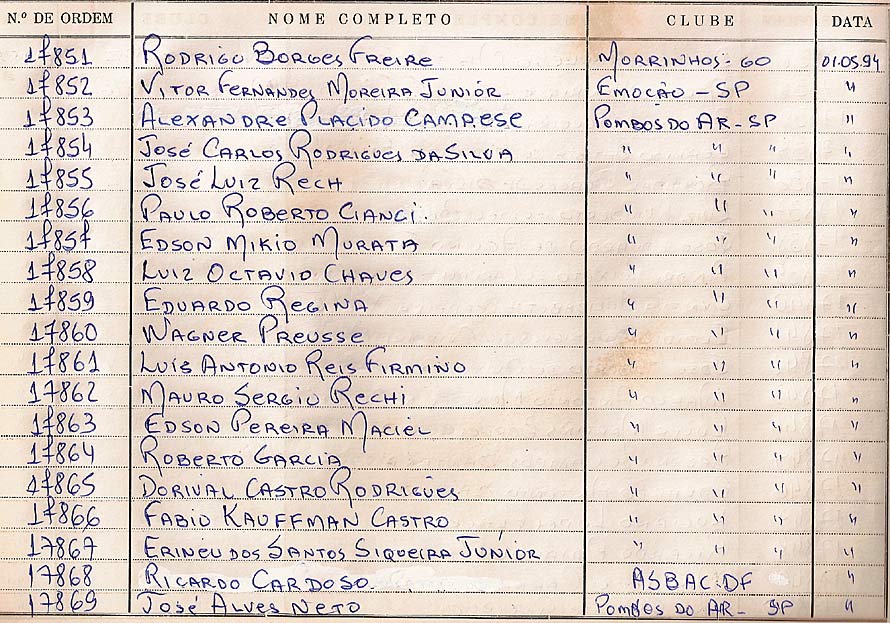 N.º DE ORDEM NOME COMPLETO CLUBE DATA
17851 RODRIGO BORGES FREIRE MORRINHOS - GO 01.05.94
17852 VITOR FERNANDES MOREIRA JUNIÓR EMOÇÃO - SP "
17853 ALEXANDRE PLACIDO CAMPESE POMBOS DO AR - SP "
17854 JOSÉ CARLOS RODRIGUES DA SILVA " " " "
17855 JOSÉ LUIZ RECH " " " "
17856 PAULO ROBERTO CIANCI. " " " "
17857 EDSON MIKIO MURATA " " " "
17858 LUIZ OCTAVIO CHAVES " " " "
17859 EDUARDO REGINA " " " "
17860 WAGNER PREUSSE " " " "
17861 LUÍS ANTONIO REIS FIRMINO " " " "
17862 MAURO SERGIO RECHI " " " "
17863 EDSON PEREIRA MACIEL " " " "
17864 ROBERTO GARCIA " " " "
17865 DORIVAL CASTRO RODRIGUES " " " "
17866 FABIO KAUFFMAN CASTRO " " " "
17867 ERINEU DOS SANTOS SIQUEIRA JUNIÓR " " " "
17868 RICARDO CARDOSO. ASBAC. DF "
17869 JOSÉ ALVES NETO DO AR - SP "